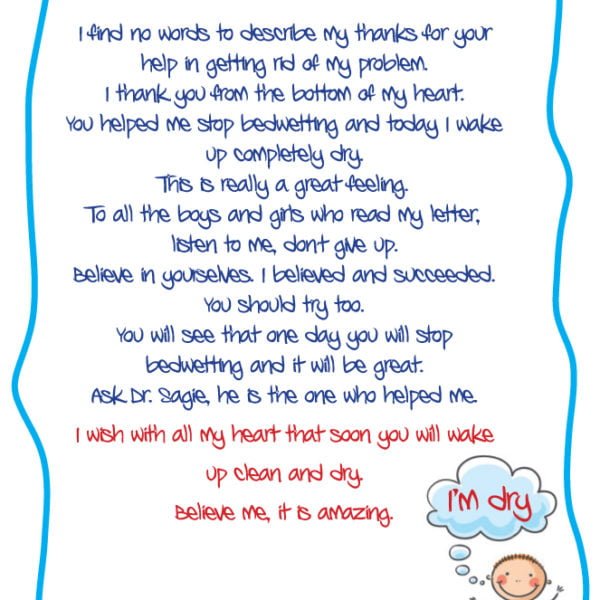 I find no words to describe my thanks for your
help in getting rid of my problem.
I thank you from the bottom of my heart.
You helped me stop bedwetting and today I wake
up completely dry.
This is really a great feeling.
To all the boys and girls who read my letter,
listen to me, dont give up.
Believe in yourselves. I believed and succeeded.
You should try too.
You will see that one day you will stop
bedwetting and it will be great.
Ask Dr. Sagie, he is the one who helped me.
I wish with all my heart that soon you will wake
up clean and dry.
Believe me, it is amazing.
I'm dry